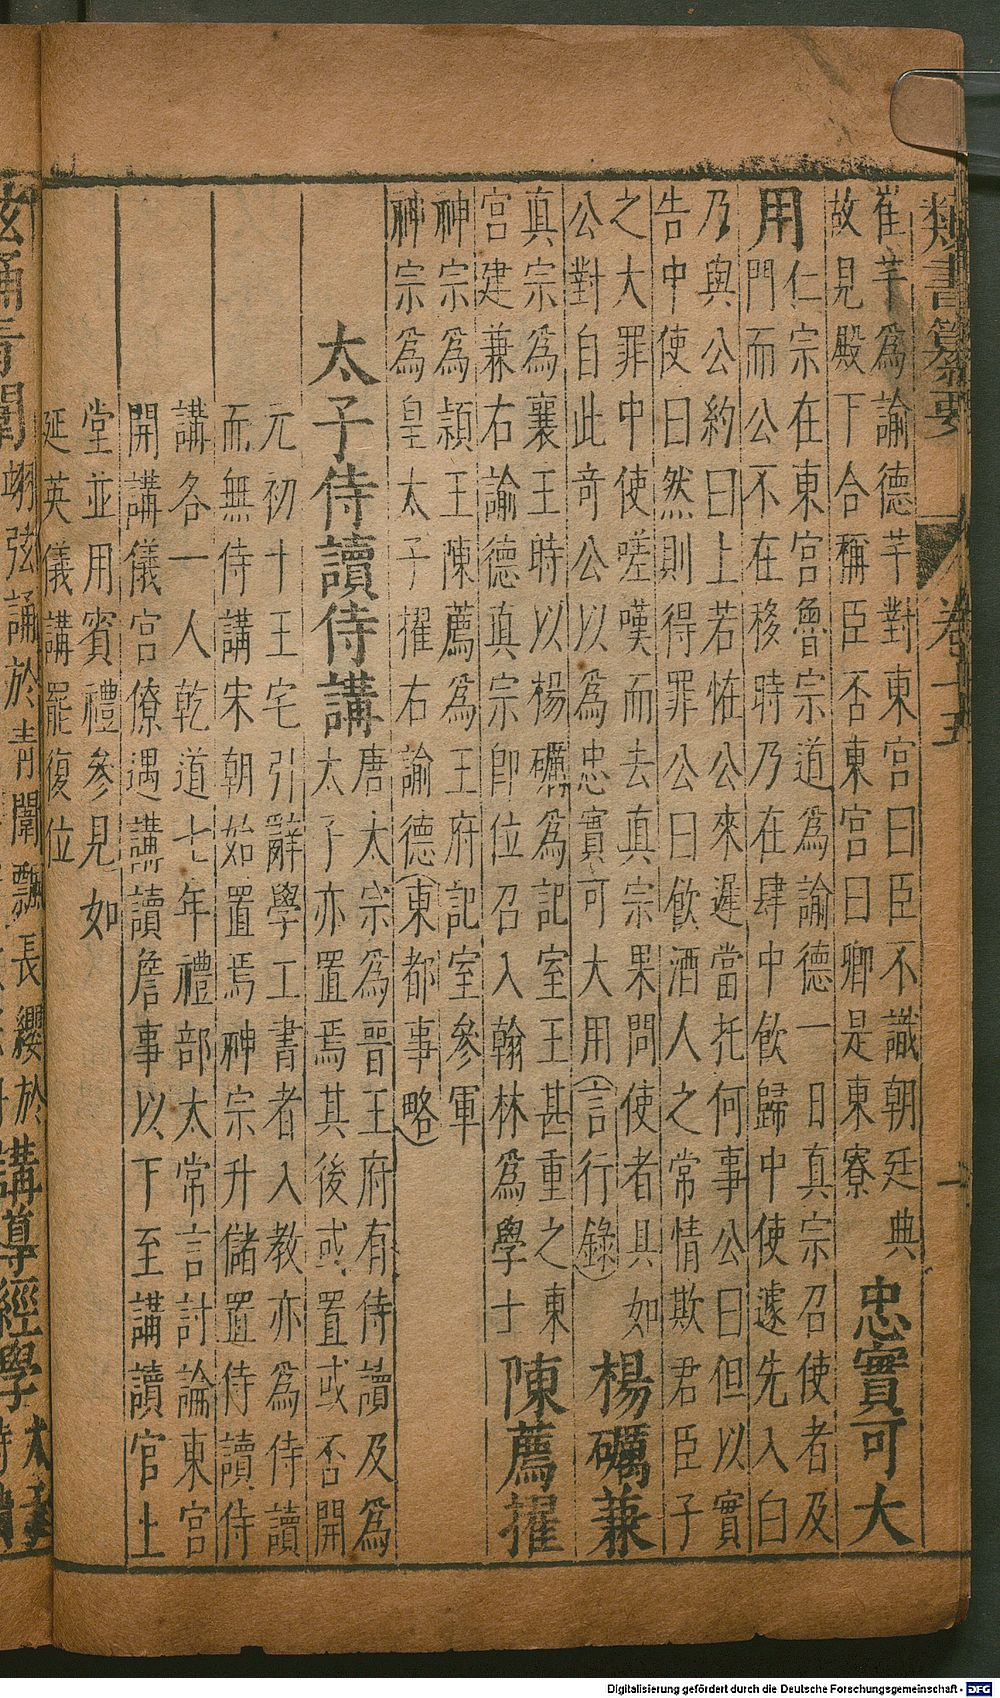 類書纂要 卷十五 一
崔芋爲諭德芋對東宮曰臣不識朝廷典
故見殿下合稱臣否東宮曰卿是東寮
忠實可大
用
仁宗在東宮魯宗道爲諭德一日真宗召使者及
門而公不在移時乃在肆中飲歸中使遽先入白
乃與公約曰上若恠公來遲當托何事公曰但以實
告中使曰然則得罪公曰飲酒人之常情欺君臣子
之大罪中使嗟嘆而去真宗果問使者具如
公對自此竒公以爲忠實可大用(言行錄)
楊礪兼
真宗爲襄王時以楊礪爲記室王甚重之東
宮建兼右諭德真宗卽位召入翰林爲學士
陳薦擢
神宗爲頴王陳薦爲王府記室參軍
神宗爲皇太子擢右諭德(東都事略)
太子侍讀侍講
唐太宗爲晉王府有侍讀及爲
太子亦置焉其後或置或否開
元初十王宅引辭學工書者入教亦爲侍讀
而無侍講宋朝始置焉神宗升儲置侍讀侍
講各一人乾道七年禮部太常言討論東宮
開講儀宮僚遇講讀詹事以下至講讀官上
堂並用賓禮參見如
延英儀講罷復位
弦誦青闈
翊弦誦於青闈飄長纓於
講導經學
太子
侍讀
Digitalisierung gefördert durch die Deutsche Forschungsgemeinschaft - DFG